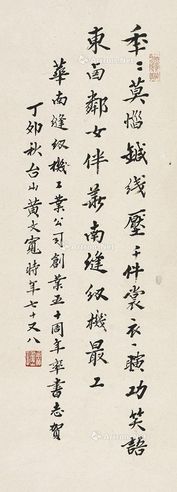 秊〻莫惱鍼线壓千件裳衣一瞚功笑語
東卥鄰女伴華南縫紉機最工
華南縫紉機工業公司創業五十周年率書志賀
丁卯秋台山黃文寬時年七十又八